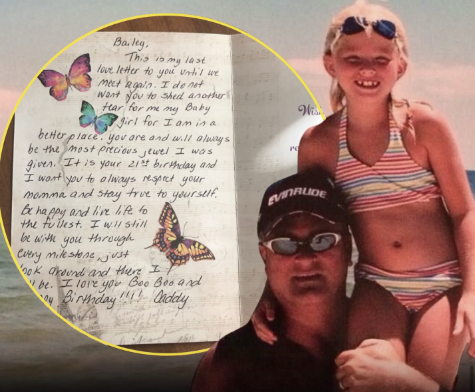 Bailey,
This is my last
love letter to you until we
meet again. I do not
want you to shed another
tear for me my Baby
girl for I am in a
better place. you are and will always
be the most precious jewel I was
given. It is your 21st birthday and
I want you to always respect your
momma and stay true to yourself.
Be happy and live life to
the fullest. I will still
be with you through
every milestone, just
look around and there I
be. I love you Boo Boo and
Birthday!!!! Daddy
EVINRUDE